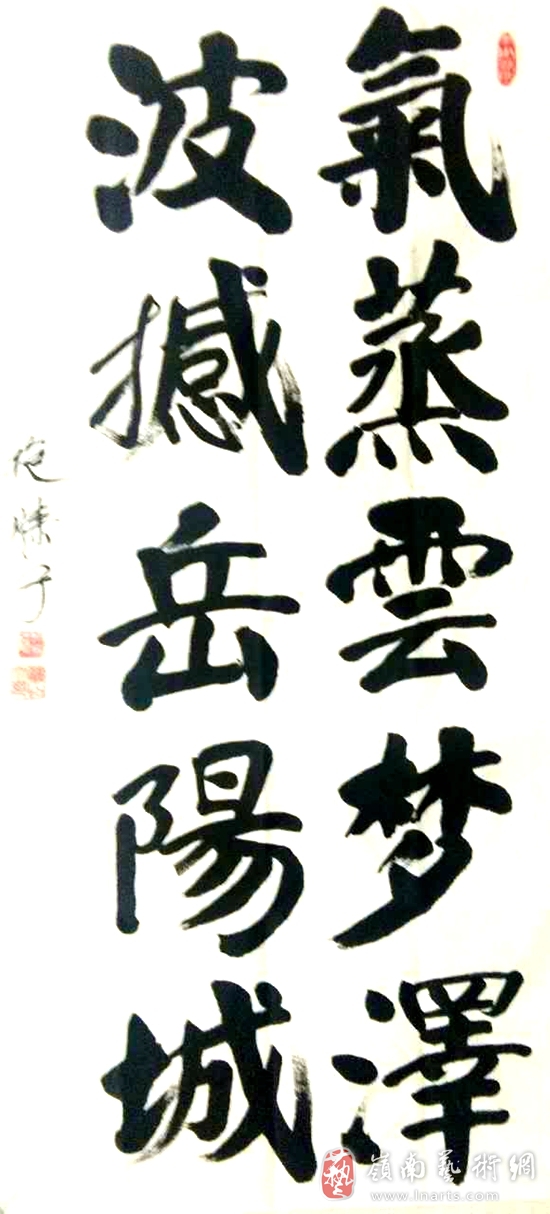 氣蒸雲梦澤
波撼岳陽城
嶺南藝術網
www.lnarts.com